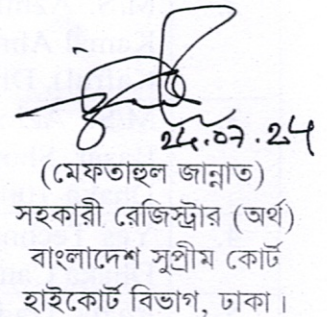 24.07.24
(মেফতাহুল জান্নাত)
সহকারী রেজিস্ট্রার (অর্থ)
বাংলাদেশ সুপ্রীম কোর্ট
হাইকোর্ট বিভাগ, ঢাকা।